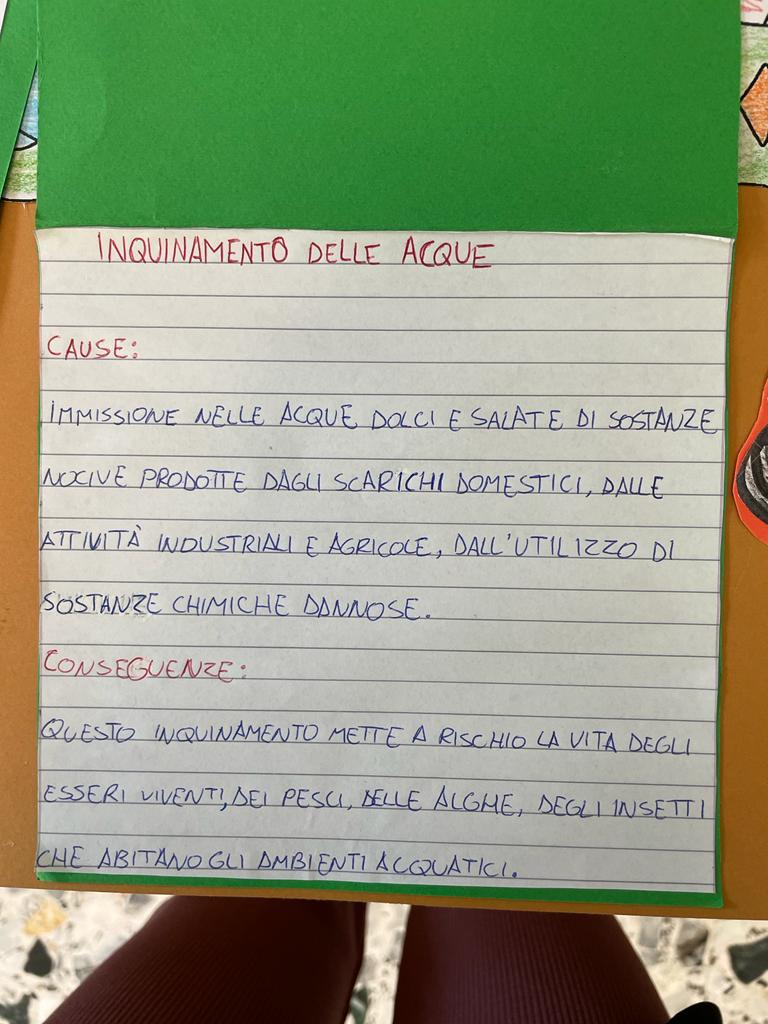 INQUINAMENTO DELLE ACQUE
CAUSE:
IMMISSIONE NELLE ACQUE DOLCI E SALATE DI SOSTANZE
NOCIVE PRODOTTE DAGLI SCARICHI DOMESTICI, DALLE
ATTIVITÀ INDUSTRIALI E AGRICOLE, DALL'UTILIZZO DI
SOSTANZE CHIMICHE DANNOSE.
CONSEGUENZE:
QUESTO INQUINAMENTO METTE A RISCHIO LA VITA DEGLI
ESSERI VIVENTI, DEI PESCI, DELLE ALGHE, DEGLI INSETTI
CHE ABITANO GLI AMBIENTI ACQUATICI.